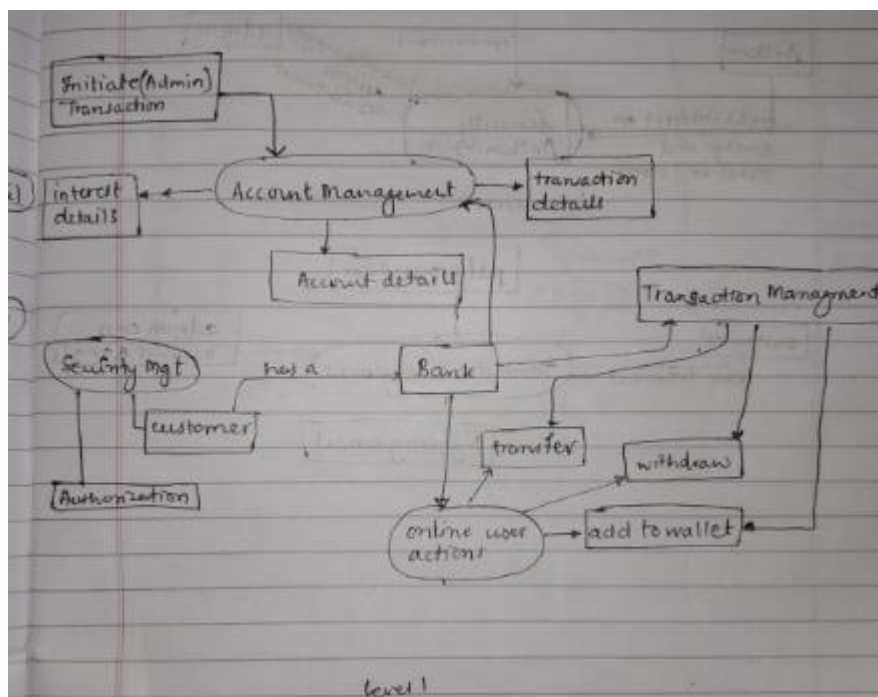 Initiate(Admin)
Transaction
interest
details
Account Management
transaction
details
Account details
Transaction Managment
Security Mgt
has a
Bank
customer
transfer
withdraw
Authorization
online user
actions
add to wallet
level 1